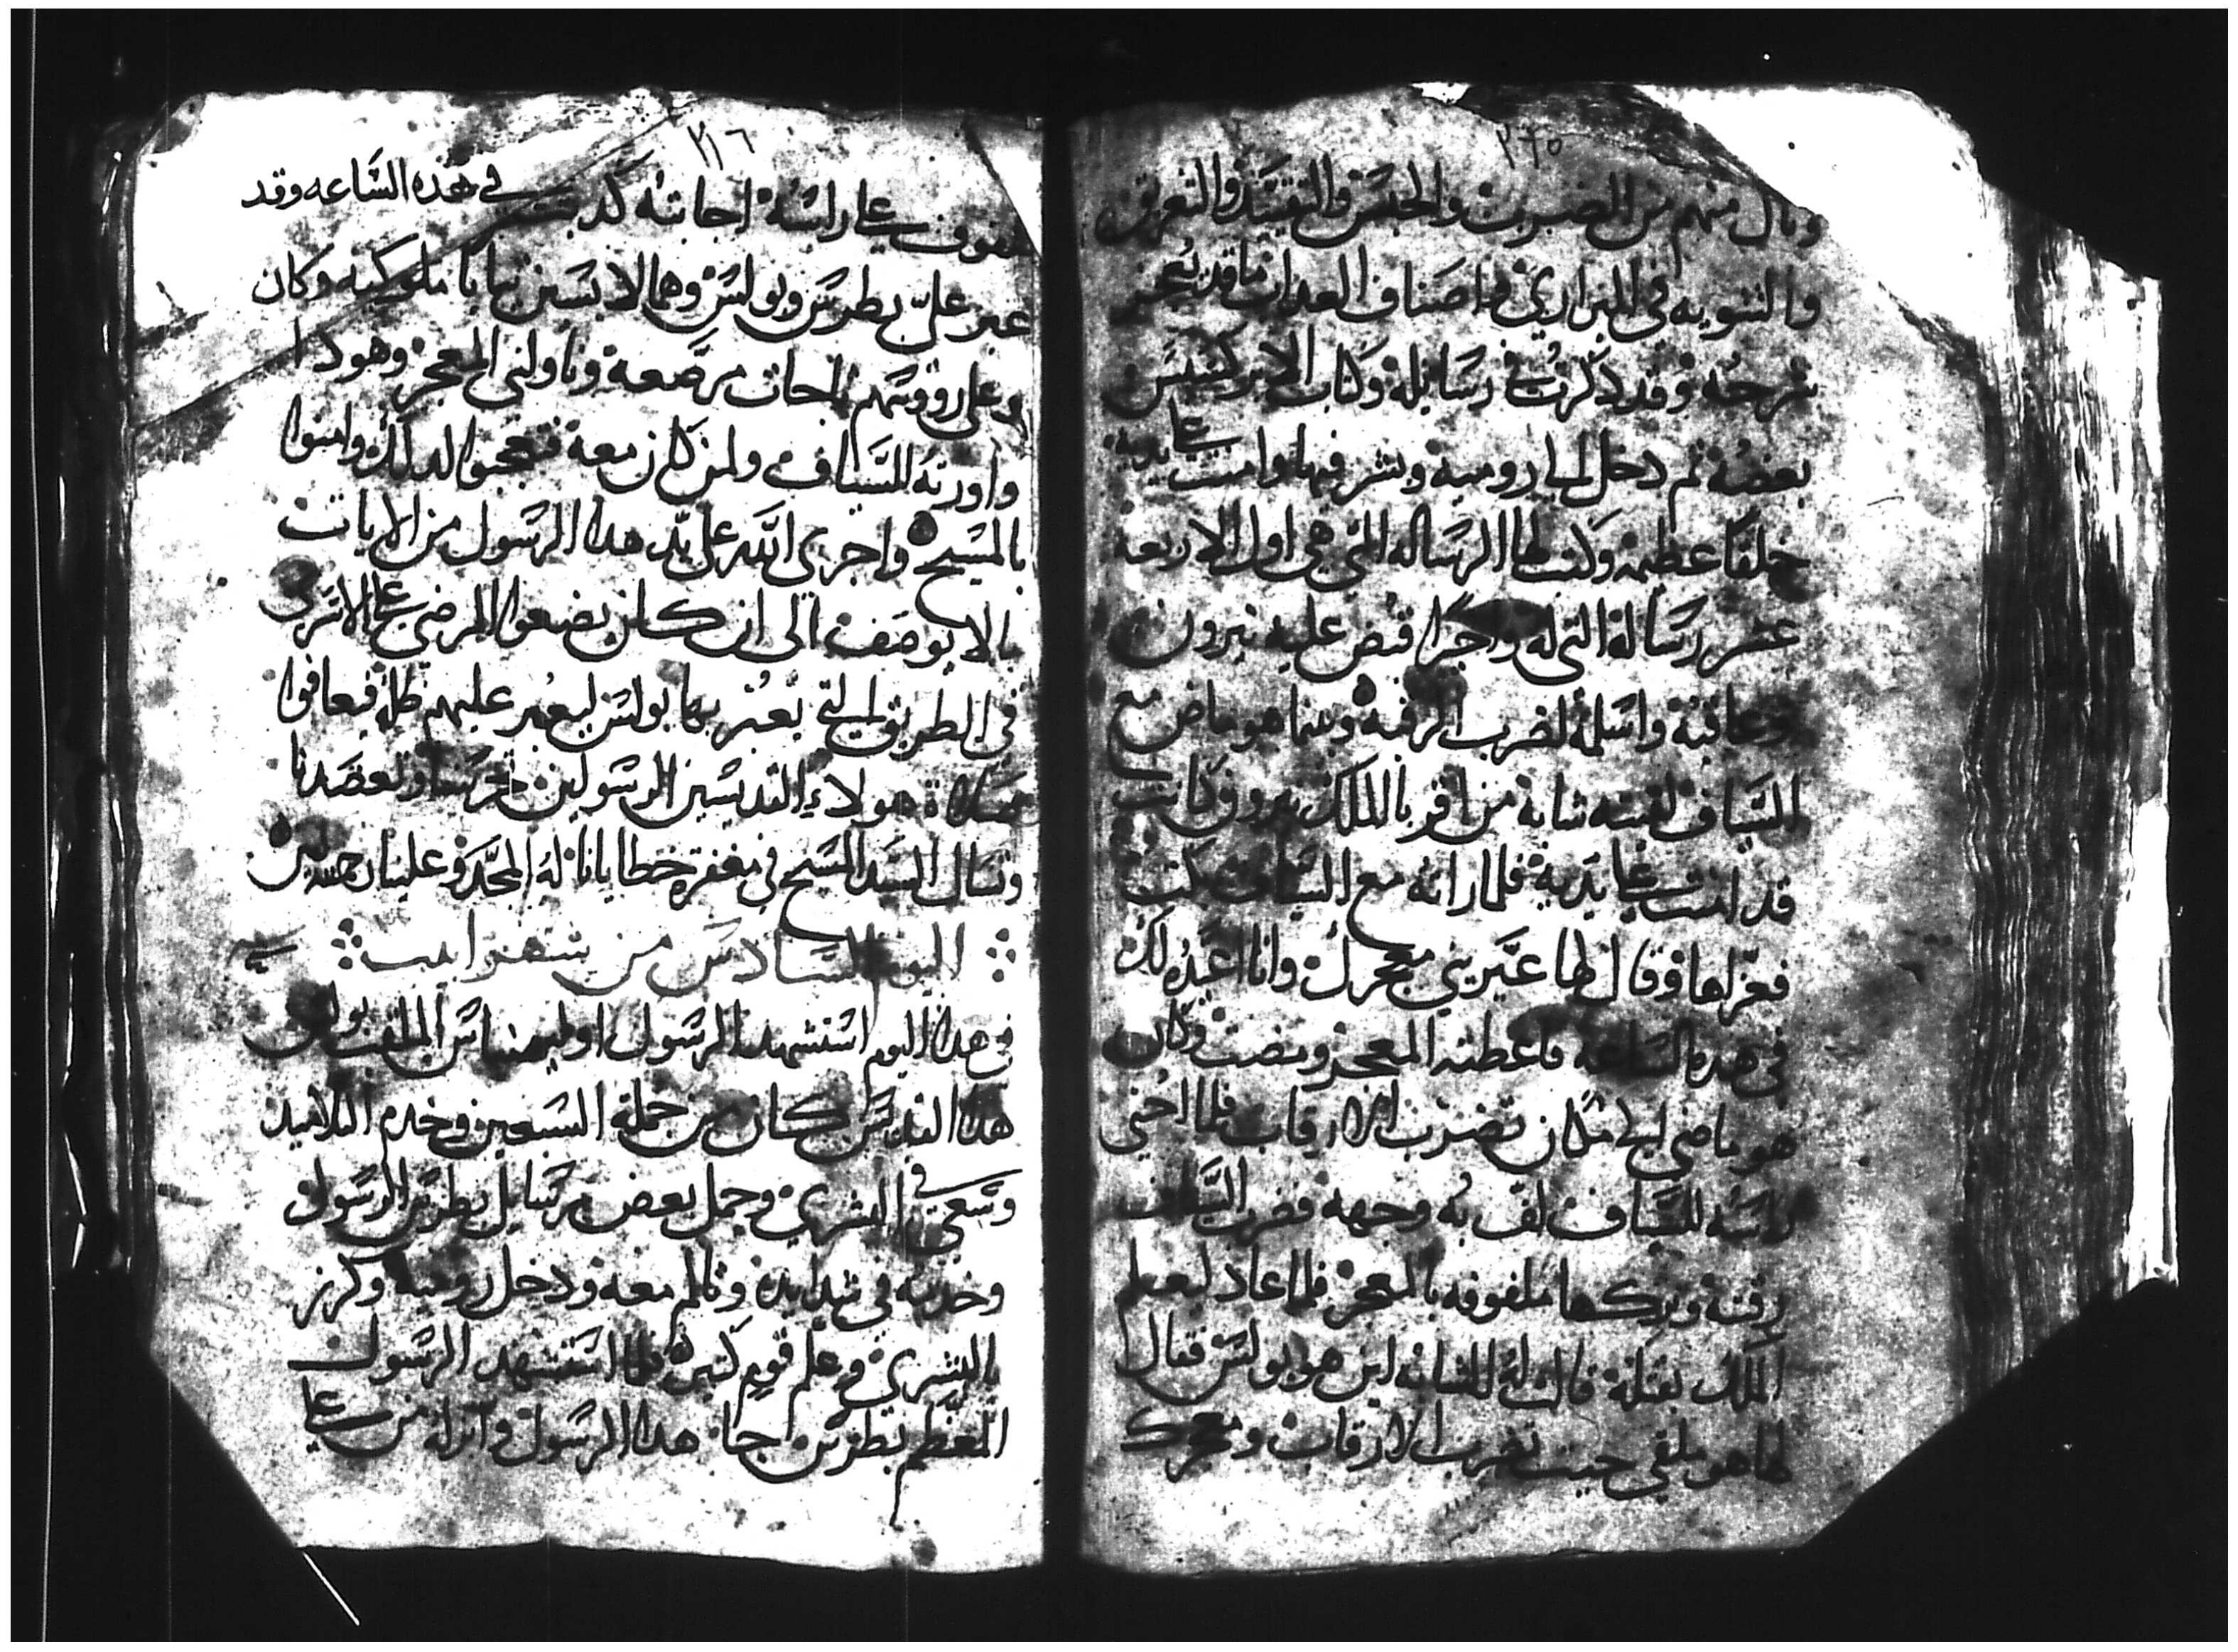 ٢٦٥
ونال منهم من الضرب والحبس والتقييد والتعرقه
والتشويه في البراري واصناف العداب ما قد يعجز
شرحه وقد دكرت في رسايله وكتاب الابركسيس
بعضه تم دخل الي روميه وبشر فيها وامنت علي يديه
خلقا عظيمه وكتب لها الرساله التي هي اول الاربعه
عشر رسالة التي له واخرا قبض عليه نيرون
وعاقبه واسلمه لضرب الرقبه وبينما هو ماض مع
السياف لقيته شابه من اقربا الملك نيرون وكانت
قد امنت علي يديه فلما راته مع السياف بكت
فعزاها وقال لها عيريني معجرك وانا اعيده لك
في هده الساعه فاعطته المعجر ومضت وكان
هو ماضي الي مكان تضرب الارقاب فلما احني
راسه للسياف لف به وجهه فضرب السياف
رقبته وتركها ملفوفه بالمعجر فلما عاد ليعلم
الملك بقتله قالت له الشابه اين هو بولس فقال
لها هو ملقي حيت تضرب الارقاب ومعجرك
٢٦٦
ملفوف علي راسه اجابته كدبت في هده الساعه وقد
عبر علي بطرس وبولس وهما لابسين تيابا ملوكيه وكان
وعلي رووسهم تاجات مرصعه وناولني المعجر وهو دا
واورته للسياف ولمن كان معه فتعجبوا لدلك وامنوا
بالمسيح واجري الله علي يد هدا الرسول من الايات
بالا يوصف الي ان كان يضعوا المرضي علي الاسره
في الطريق التي يعبر بها بولس ليعبر عليهم ظله فيعافوا
صلاة هولاء القديسين الرسولين تحرسنا وتعضدنا
ونسال السيد المسيح في مغفرة خطايانا له المجد وعلينا رحمته امين
اليوم السادس من شهر ابيب
في هدا اليوم استشهد الرسول اولمبياس الملقب بولس
هدا القديس كان من جملة السبعين وخدم التلاميد
وسعي في البشري وحمل بعض رسايل بطرس الرسول
وخدمه في شدايده وتالم معه ودخل روميه وكرز
بالبشري وعلم قوم كتيره فلما استشهد الرسول
المعظم بطرس اجا هدا الرسول وانزله من علي